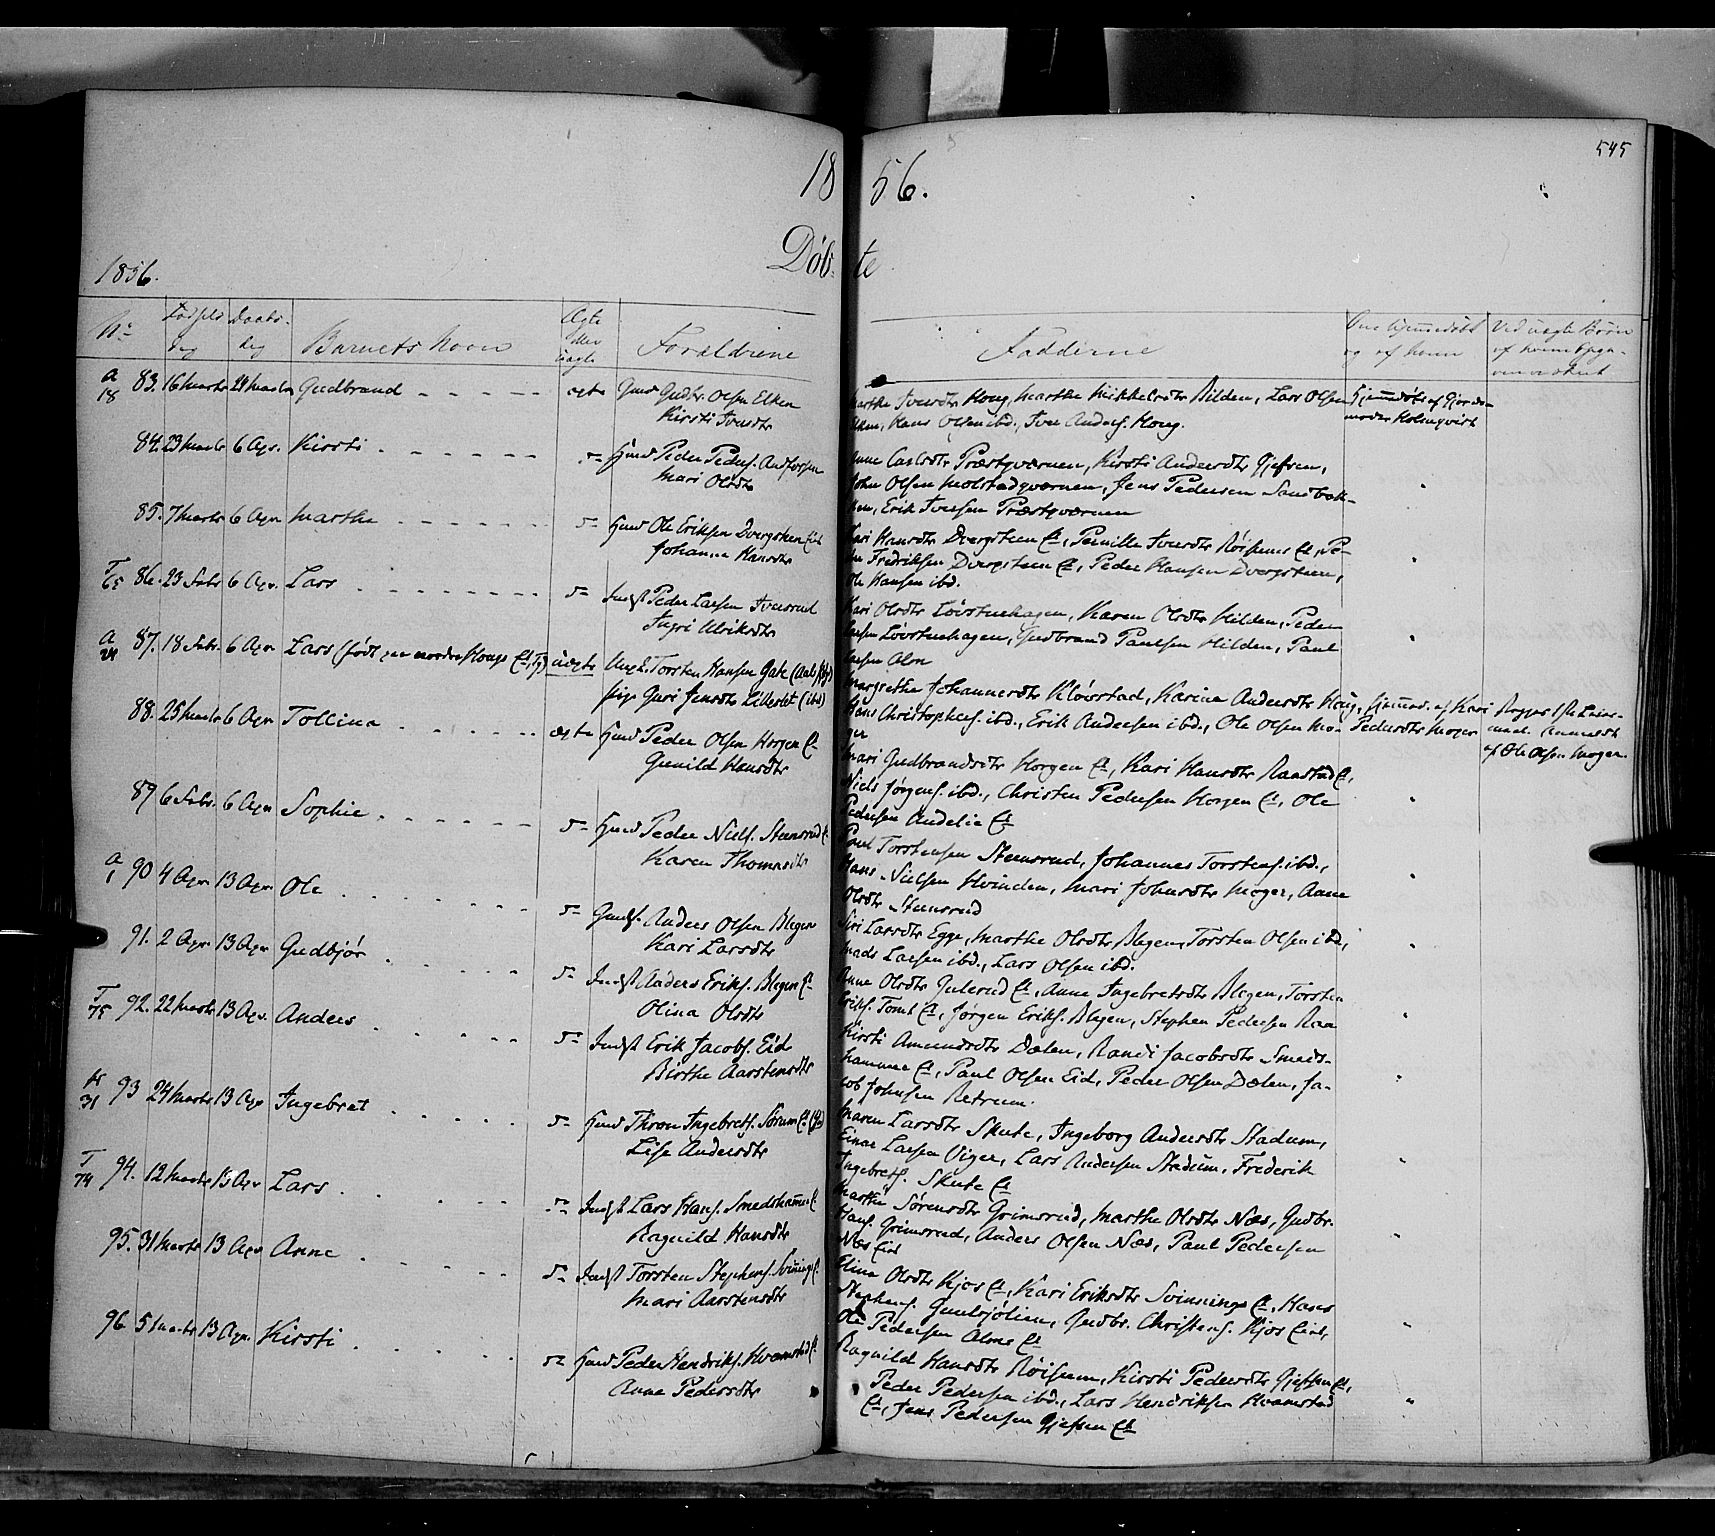 545
18 56.
Døb- te
1856.
No Fødsels Dag Daabs- dag Barnets Navn Ægte eller Uægte Forældrene Fadderne Om hjemmedøbt og af hvem Ved uægte Børn af hvem Opga-
A 18 83. 16 Marts 24 Marts Gudbrand ægte Gmd Gudbr. Olsen Elken
Kirsti Iversdtr
Marthe Iversdtr Houg, Marthe Mikkelsdtr Bilden, Lars Olsen
Elken, Hans Olsen ibd., Iver Anders. Houg.
Hjemmedøbt af Gjorde-
moder Holmqvist
84. 23 Marts 6 Apr. Kirsti Hmd Peder Peders.
Mari Olsdtr
Anne Carlsdtr Præstqværnen, Kirsti Andersdtr Gjefsen,
John Olsen Molstadqværnen, Jens Pedersen Sandbak-
ken, Erik Iversen Præstqværnen
85. 7 Marts 6 Apr Marthe Hmd Ole Eriksen Dvergsteen Eie
Johanne Hansdtr
Kari Hansdtr Dvergsteen Et, Pernille Iversdtr Røisum Et, Pe-
der Fredriksen Dvergsteen Et, Peder Hansen Dvergsteen,
Ole Hansen ibd.
T 65 86. 23 Febr. 6 Apr. Lars Indst Peder Larsen Iversrud
Ingri Ulriksdtr
Kari Olsdtr Løvstuehagen, Karen Olsdtr Hilden, Peder
Larsen Løvstuehagen, Gudbrand Paulsen Hilden, Paul
Larsen Alm
A 24 87. 18 Febr. 6 Apr Lars (født paa nordre Houg uægte Ungk. Torsten Hansen Gate
Pige Guri Jensdtr Lilleslet (ibd)
Margrethe Johannesdtr Kløvstad, Karine Andersdtr Houg,
Hans Christophers. ibd., Erik Andersen ibd., Ole Olsen Mo-
ger
Hjemmed. af Kari
Pedersdtr Moger
af Ole Olsen Moger.
88. 25 Marts 6 Apr Tollina ægte Hmd Peder Olsen Horgen Et
Gunild Hansdtr
Mari Gudbrandsdtr Horgen Et, Kari Hansdtr Raastad Et,
Niels Jørgens. ibd., Christen Pedersen Horgen Et, Ole
Pedersen Andelic Et
89 6 Febr. 6 Apr Sophie Hmd Peder Niels. Steensrud Et
Karen Thomasdtr
Poul Torstensen Steensrud, Johannes Torstens. ibd.,
Hans Nielsen Hvinden, Mari Johnsdtr Moger, Anne
Olsdtr Steensrud
A 1 90 4 Apr 13 Apr Ole Gmdst. Anders Olsen Blegen
Kari Larsdtr
Siri Larsdtr Egge, Marthe Olsdtr Blegen, Torsten Olsen ibd.,
Mads Larsen ibd., Lars Olsen ibd.
91. 2 Apr 13 Apr Gudbjør Indst Anders Eriks. Blegen Et
Olina Olsdtr
Anne Olsdtr Gulerud Et, Anne Ingebretsdtr Blegen, Torsten
Eriks. Tomt Et, Jørgen Eriks. Blegen, Stephen Pedersen Raa
T 75 92. 22 Marts 13 Apr. Anders Indst Erik Jacobs. Eid
Birthe Aarstensdtr
Kirsti Amundsdtr Dælen, Randi Jacobsdtr Smeds-
hammer Et, Paul Olsen Eid, Peder Olsen Dælen, Ja-
cob Johnsen Retrum.
31 93 24 Marts 13 Apr Ingebret Hmd Thron Ingebrets. Sørum Et
Lise Andersdtr
Maren Larsdtr Skute, Ingeborg Andersdtr Stadum,
Einar Larsen Viger, Lars Andersen Stadum, Frederik
Ingebrets. Skute Et
T 74 94. 12 Marts 13 Apr Lars Indst Lars Hans. Smedshammer Et
Ragnild Hansdtr
Marthe Sørensdtr Grimsrud, Marthe Olsdtr Næs, Gudbr.
Hans. Grimsrud, Anders Olsen Næs, Paul Pedersen
Næs Eiet
95. 31 Marts 13 Apr Anne Indst Torsten Stephens. Svinning Et.
Mari Aarstensdtr
Eline Olsdtr Kjos Et, Kari Eriksdtr Svinninge Et, Hans
Stephens. Gunbjølien, Gudbr. Christens. Kjos Eiet,
Ole Pedersen Alme Et
96 5 Marts 13 Apr. Kirsti Hmd Peder Hendriks. Hvamstad Et.
Anne Pedersdtr
Ragnild Hansdtr Røisum, Kirsti Pedersdtr Gjefsen Et,
Peder Pedersen ibd., Lars Hendriksen Hvamstad
Et, Jens Pedersen Gjefsen Et